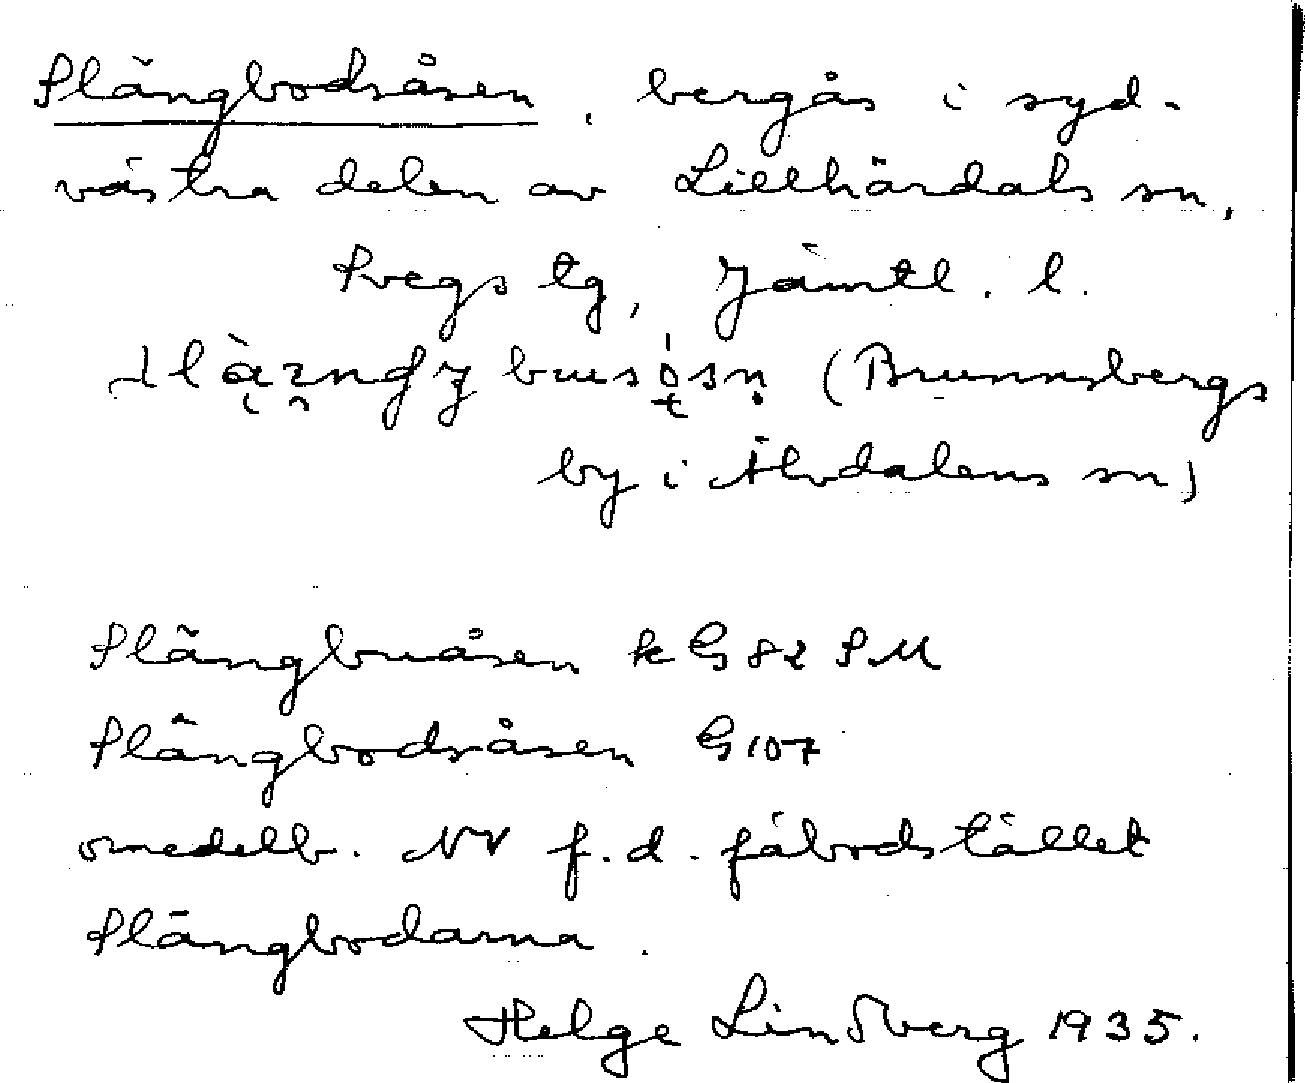 Slängbodsåsen, bergås i syd-
västra delen av Lillhärdals sn,
Svegs tg, Jämtl. l.
(Brunnsbergs
by i Älvdalens sn)
Slängbuåsen k G 82 SM
Slängbodsåsen G 107
omedelb. NV f.d. fäbodstället
Slängbodarna.
Helge Lindberg 1935.